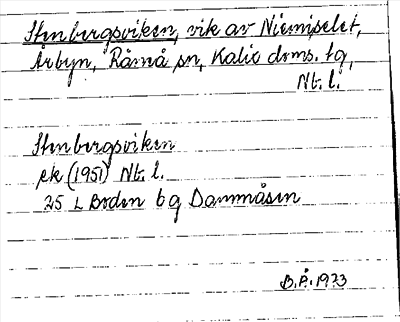 Stenbergsviken, vik av Niemiselet,
Årbyn, Råneå sn, Kalix doms. tg,
Nb. l.
Stenbergsviken
ek (1951) Nb. l.
25 L Boden 6 g Dammåsen
B.P. 1973